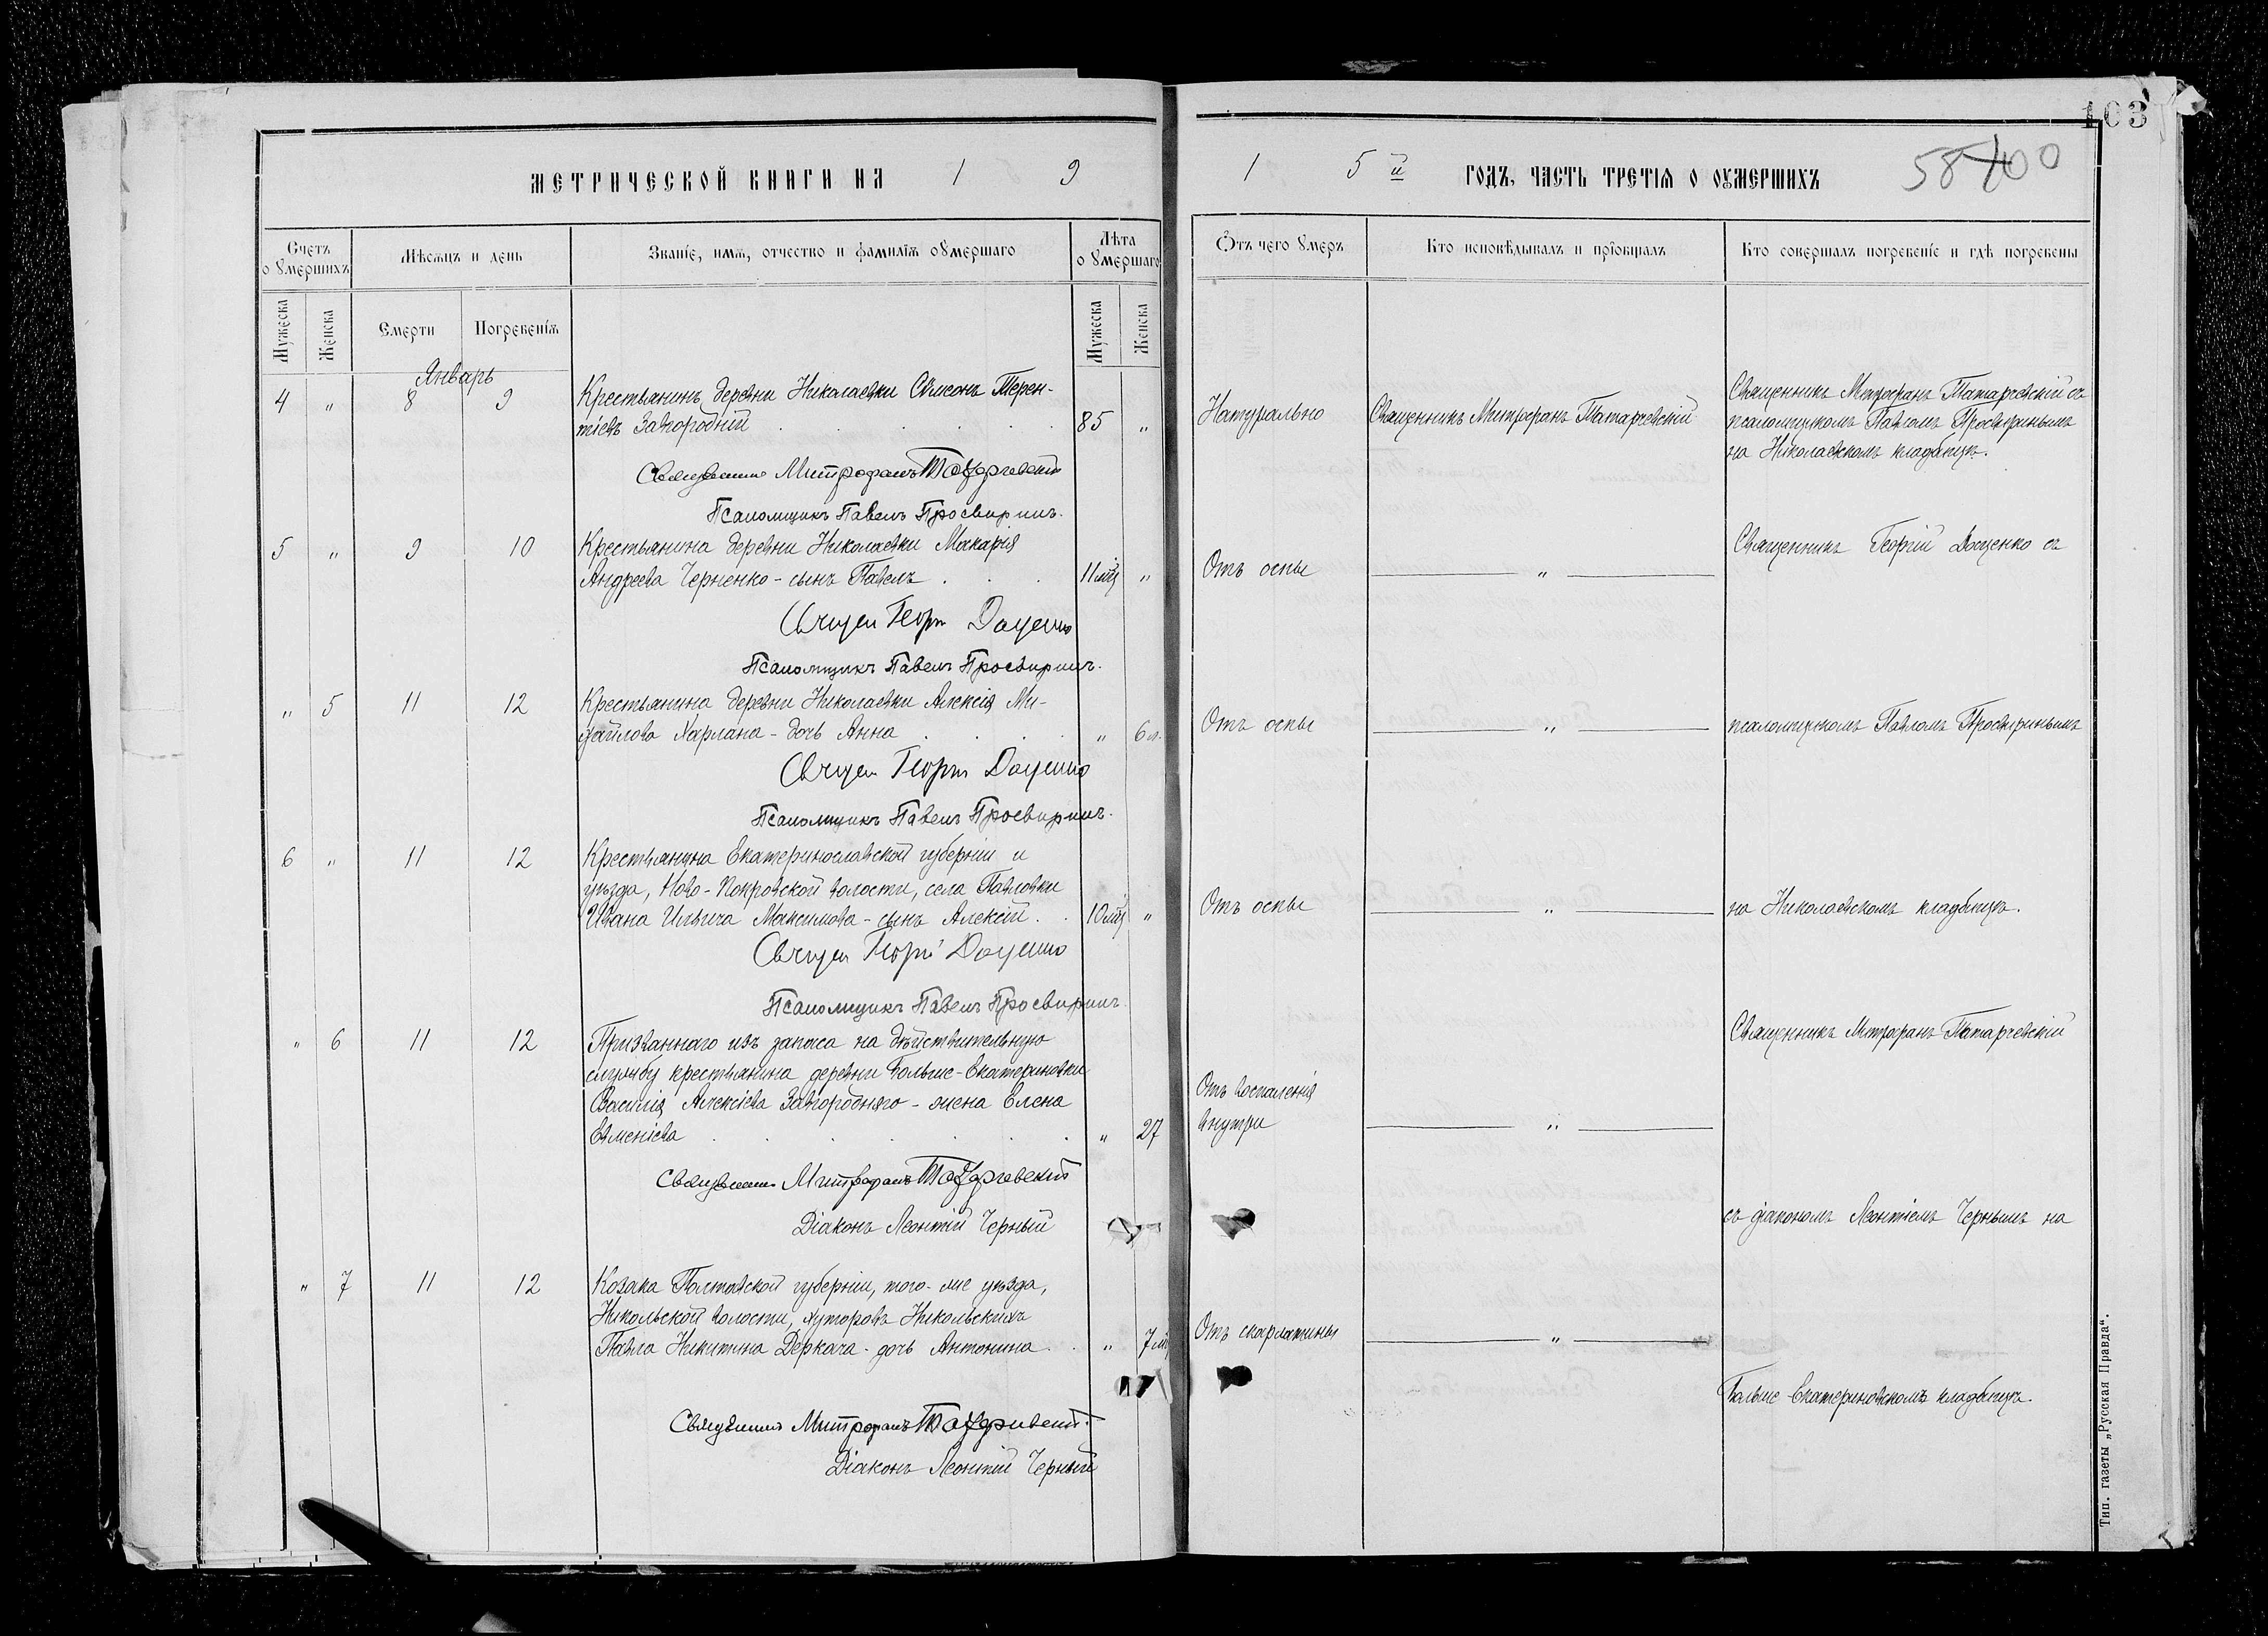 103
МЕТРИЧЕСКОЙ КНИГИ НА 1 9 1 5й ГОДЪ, ЧАСТЬ ТРЕТІЯ О ОУМЕРШИХЪ
58 100
Счетъ оумершихъ
Мѣсяцъ и день
Званіе, имя, отчество и фамилія оумершаго
Лѣта оумершаго
Отъ чего умеръ
Кто исповѣдывалъ и пріобщалъ
Кто совершалъ погребеніе и гдѣ погребены
Мужеска
Женска
Смерти
Погребенія
Мужеска
Женска
Январь
4 " 8 9 Крестьянинъ деревни Николаевки Симеонъ Терен-
тіевъ Завгородній 85 " Натурально Священникъ Митрофанъ Татарчевскій
Священникъ Митрофанъ Татарчевскій съ
псаломщикомъ Павломъ Просвиринымъ
на Николаевскомъ кладбищѣ.
Священникъ Митрофанъ Татарчевскій
Псаломщикъ Павелъ Просвиринъ.
5 " 9 10 Крестьянина деревни Николаевки Макарія
Андреева Черненко - сынъ Павелъ 11 мѣс " Отъ оспы "
Священникъ Георгій Доценко съ
Священ Георгій Доценко
Псаломщикъ Павелъ Просвиринъ.
" 5 11 12 Крестьянина деревни Николаевки Алексія Ми-
хайлова Харлана - дочь Анна " 6 л. Отъ оспы " псаломщикомъ Павломъ Просвиринымъ
Священ Георгій Доценко
Псаломщикъ Павелъ Просвиринъ.
6 " 11 12 Крестьянина Екатеринославской губерніи и
уѣзда, Ново-Покровской волости, села Павловки
Ивана Ильича Максимова - сынъ Алексій 10 мѣс " Отъ оспы " на Николаевскомъ кладбищѣ.
Священ Георгій Доценко
Псаломщикъ Павелъ Просвиринъ.
" 6 11 12 Призваннаго изъ запаса на дѣйствительную
службу крестьянина деревни Больше-Екатериновки
Василія Алексіева Завгородняго - жена Елена
Евменіева " 27 Отъ воспаленія
внутри "
Священникъ Митрофанъ Татарчевскій
Священникъ Митрофанъ Татарчевскій
Діаконъ Леонтій Черный
съ діакономъ Леонтіемъ Чернымъ на
" 7 11 12 Козака Полтавской губерніи, того-же уѣзда,
Никольской волости, хуторовъ Никольскихъ
Павла Никитина Деркача - дочь Антонина " 7 мѣс Отъ скарлатины "
Больше-Екатериновскомъ кладбищѣ.
Священникъ Митрофанъ Татарчевскій
Діаконъ Леонтій Черный
Тип. газеты „Русская Правда“.